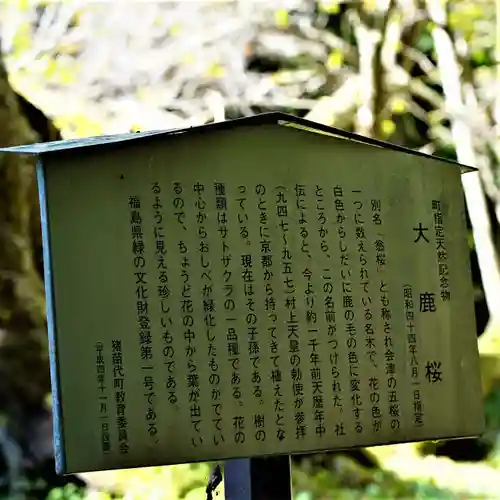 町指定天然記念物
大鹿桜
(昭和四十四年八月一日指定)
別名「翁桜」とも称され会津の五桜の
一つに数えられている名木で、花の色が
白色からしだいに鹿の毛の色に変化する
ところから、この名前がつけられた。社
伝によると、今より約一千年前天暦年中
(九四七〜九五七)村上天皇の勅使が参拝
のときに京都から持ってきて植えたとな
っている。現在はその子孫である。樹の
種類はサトザクラの一品種である。花の
中心からおしべが緑化したものがでてい
るので、ちょうど花の中から葉が出てい
るように見える珍しいものである。
福島県緑の文化財登録第一号である。
猪苗代町教育委員会
(平成四年十一月一日設置)